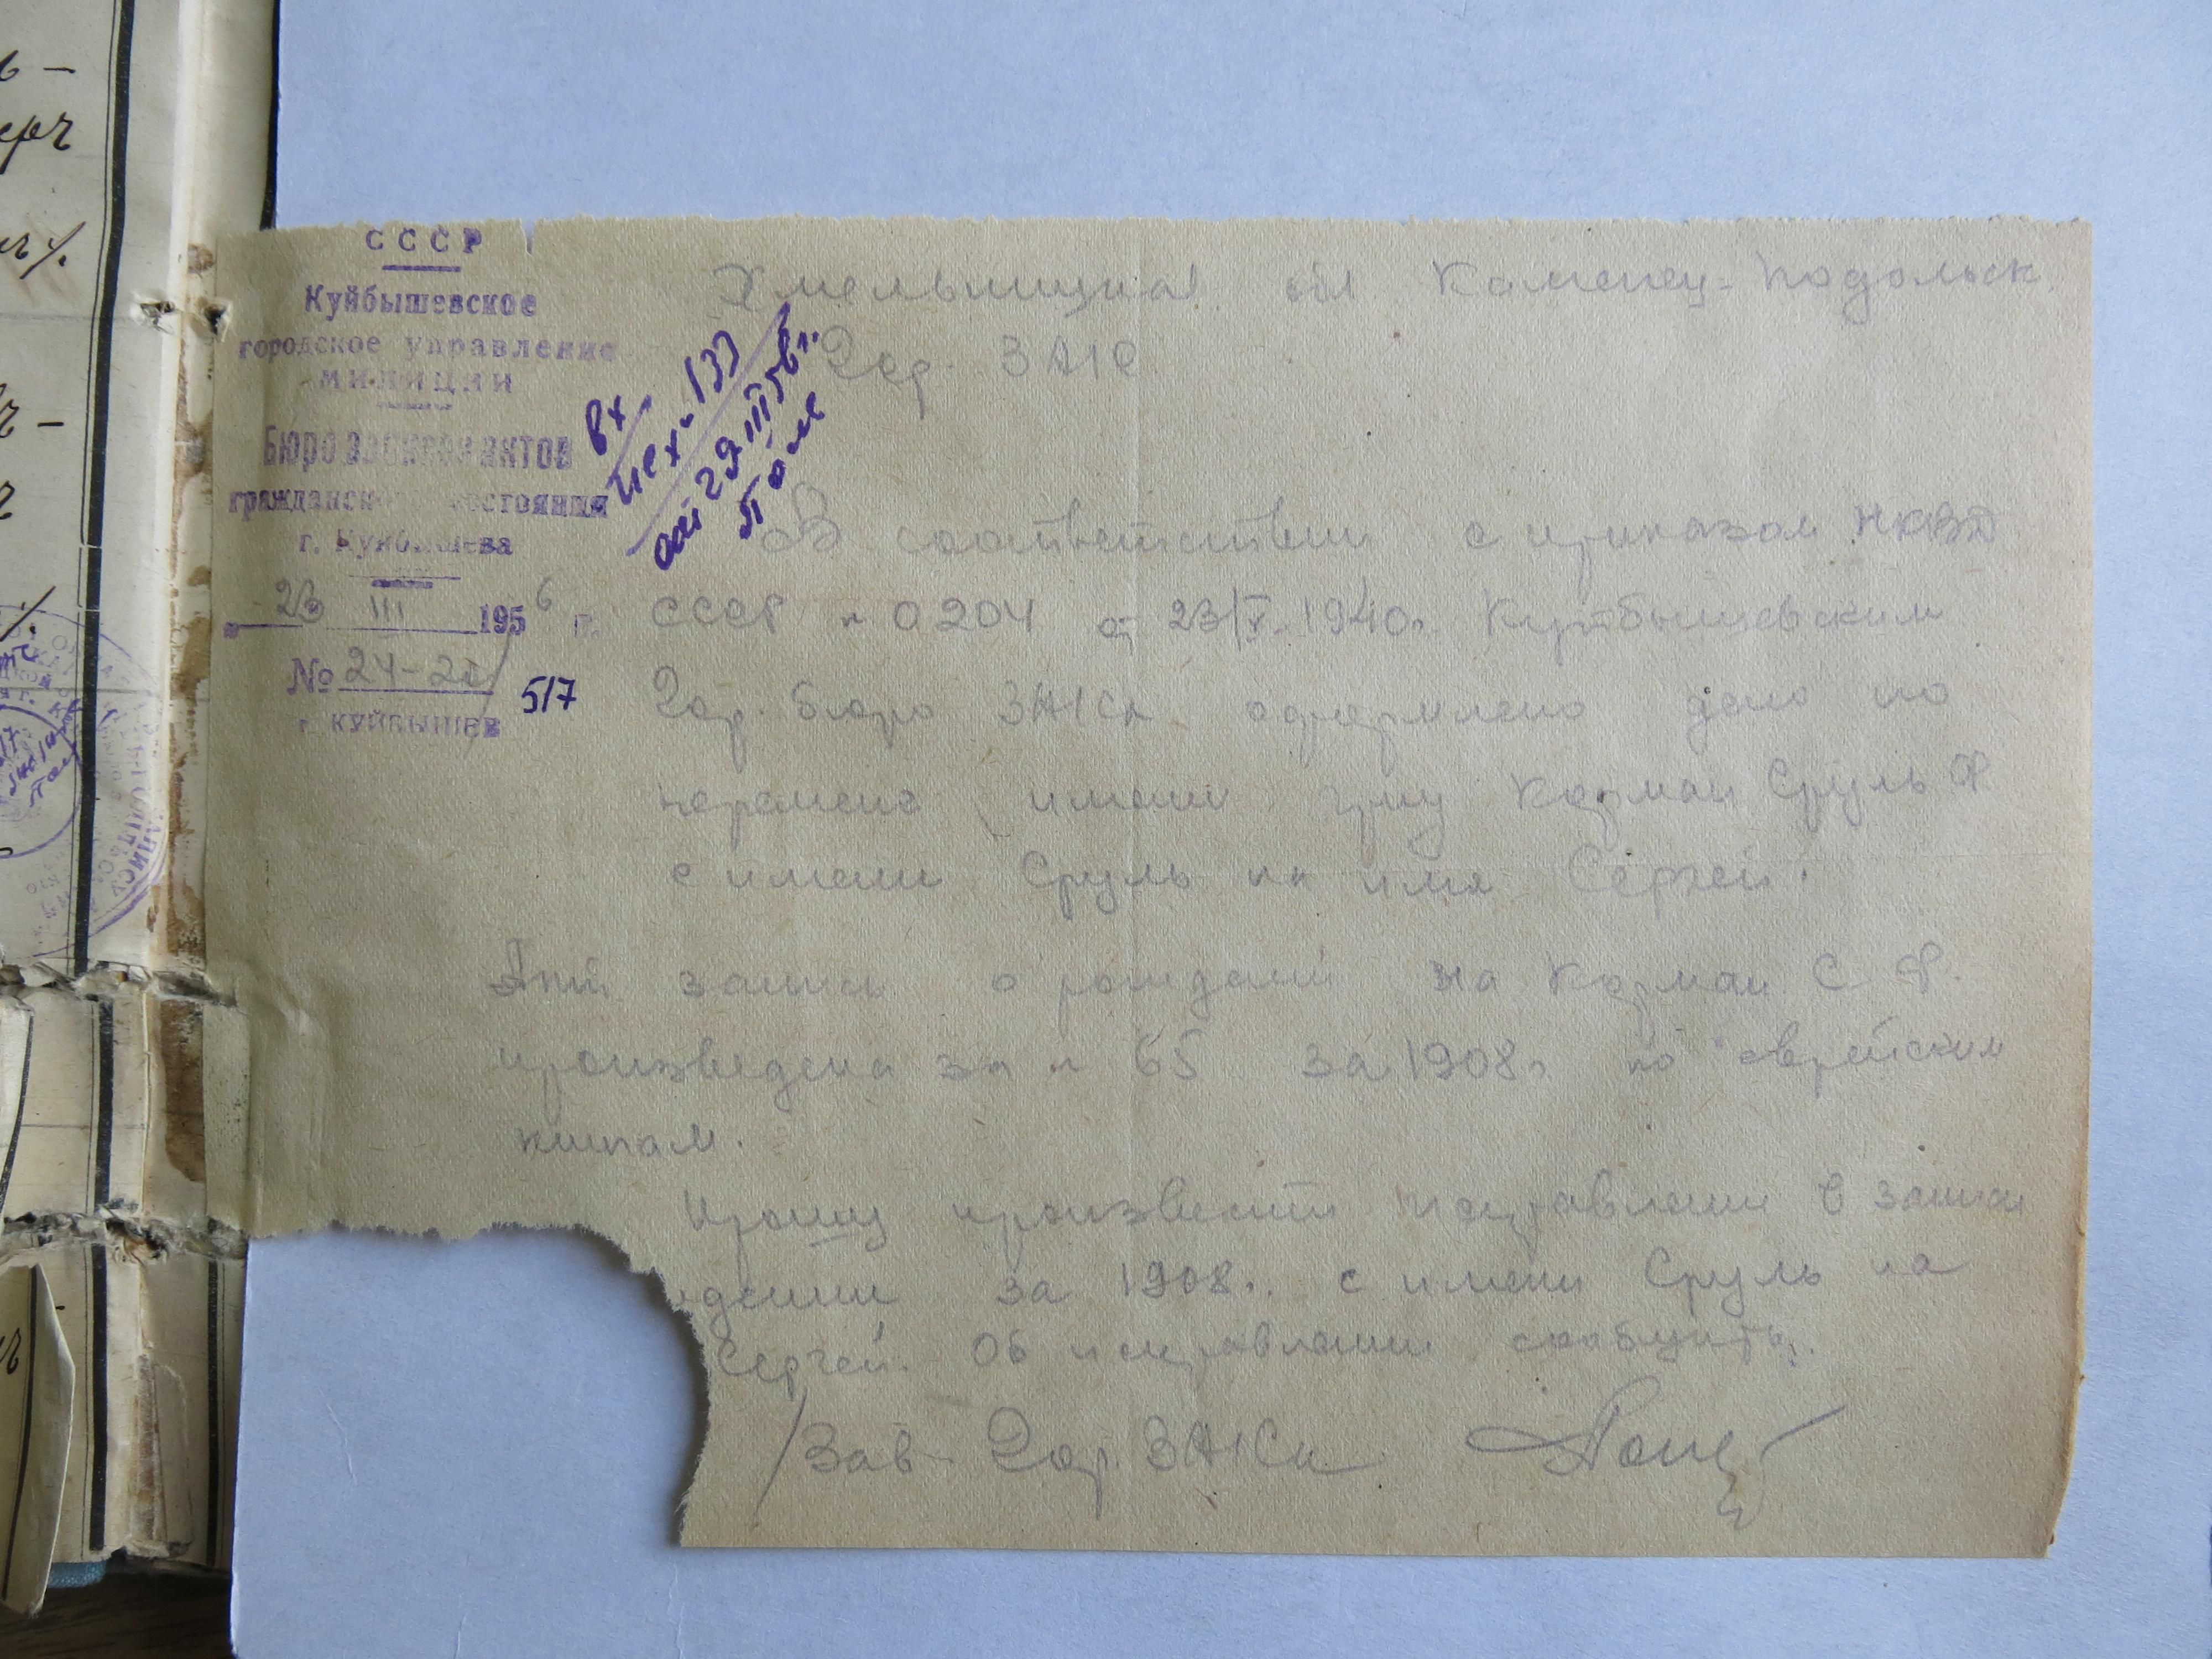 СССР
Куйбышевское
городское управление
милиции
Бюро записей актов
гражданского состояния
г. Куйбышева
23 III 1956 г.
№ 24-20/517
г. КУЙБЫШЕВ
Вх
исх-133
от 29 III 56 г.
Хмельницкая обл Каменец-Подольск.
Гор. ЗАГС
В соответствии с приказом НКВД
СССР № 0204 от 23/V. 1940г. Куйбышевским
Гор бюро ЗАГСа оформлено дело по
перемене имени гр-ну Корман Сруль Ф
с имени Сруль на имя Сергей.
Акт записи о рождении на Корман С. Ф.
произведена за № 65 за 1908г. по еврейским
книгам.
Прошу произвести исправление в записи
ждении за 1908г. с имени Сруль на
Сергей. Об исправлении сообщить.
Зав. Гор. ЗАГСа